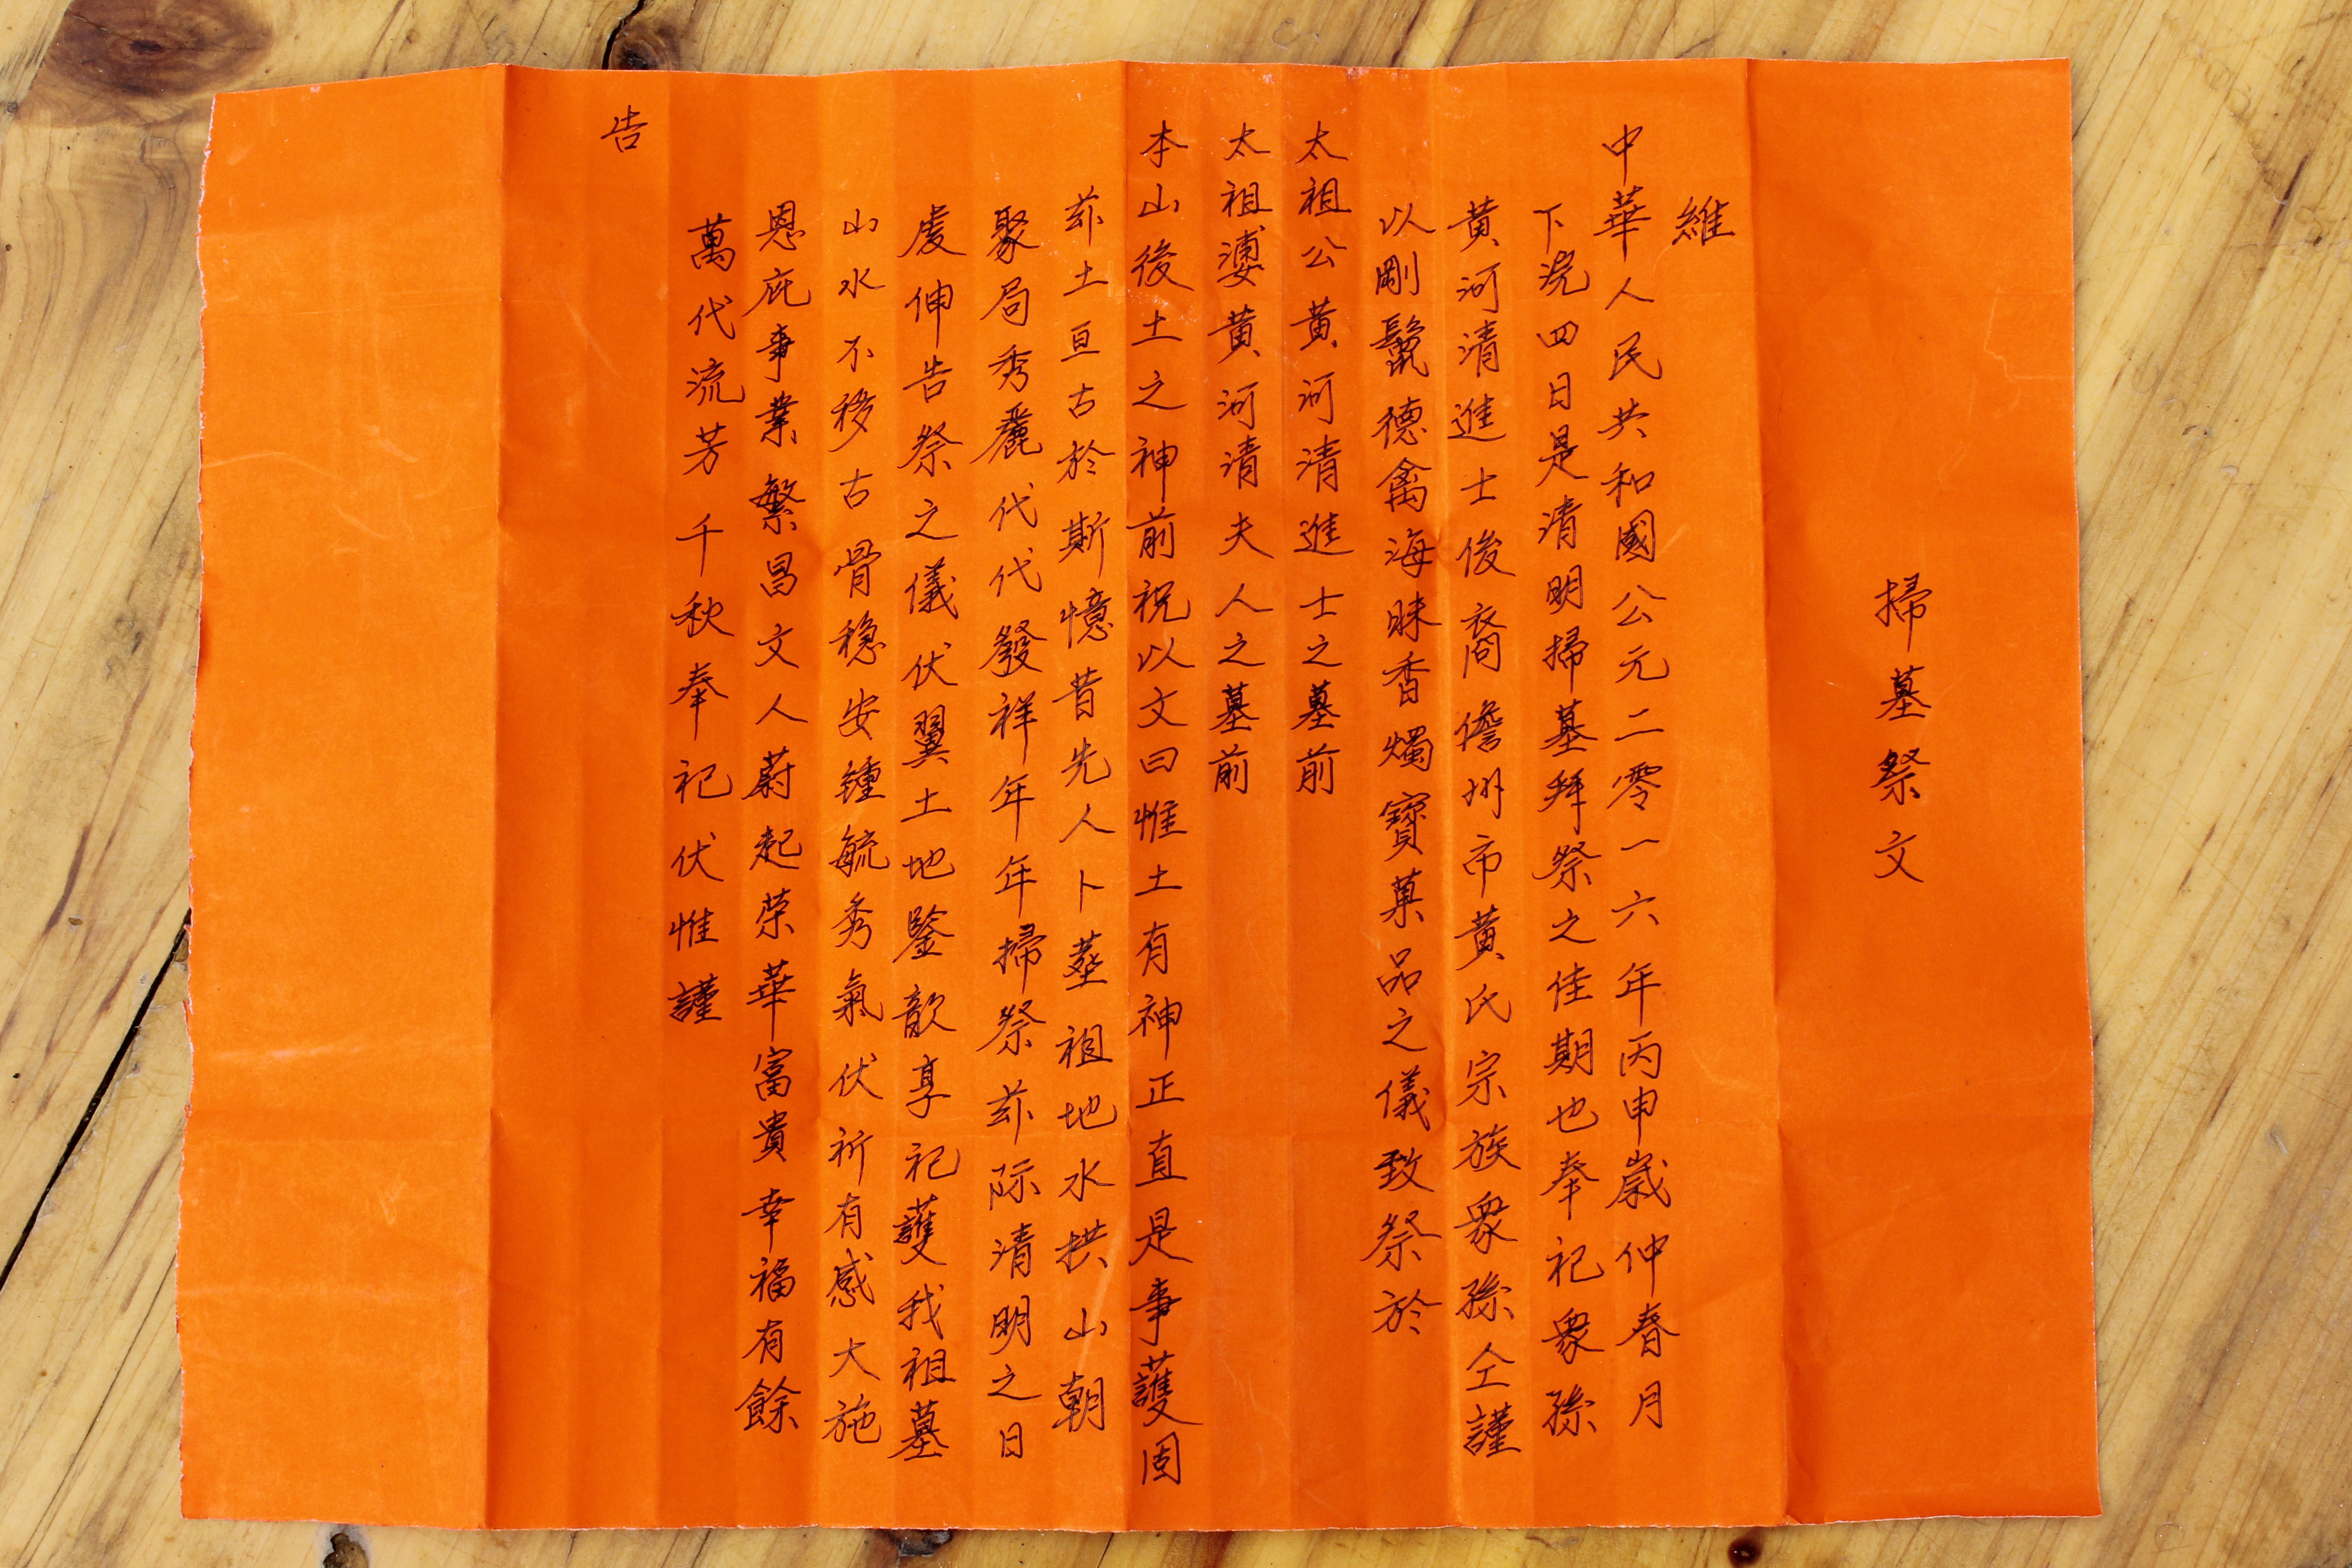 掃墓祭文
維
中華人民共和國公元二零一六年丙申歲仲春月
下浣四日是清明掃墓拜祭之佳期也奉祀衆孫
黃河清進士後裔儋州市黃氏宗族衆孫仝謹
以剛鬣德禽海味香燭寶菓品之儀致祭於
太祖公黃河清進士之墓前
太祖婆黃河清夫人之墓前
本山後土之神前祝以文曰惟土有神正直是事護固
茲土亘古於斯憶昔先人卜塟祖地水拱山朝
聚局秀麗代代發祥年年掃祭茲际清明之日
虔伸告祭之儀伏翼土地鑒歆享祀護我祖墓
山水不移古骨穏安鍾毓秀氣伏祈有感大施
恩庇事業繁昌文人蔚起荣華富貴幸福有餘
萬代流芳千秋奉祀伏惟謹
告